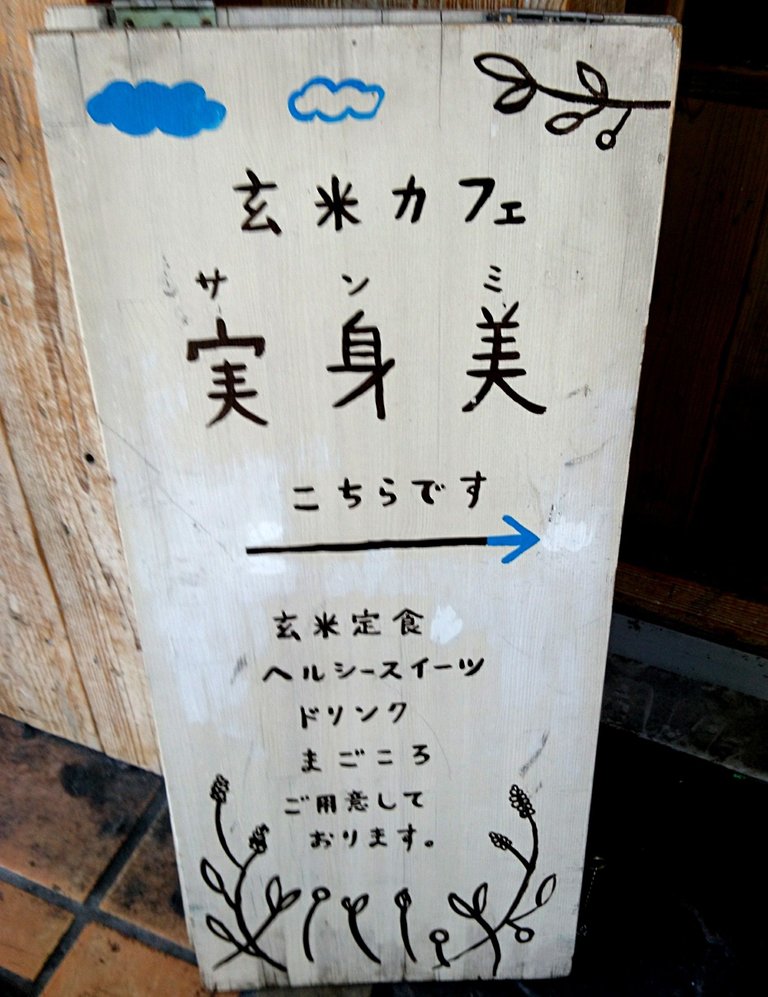 玄米カフェ
サンミ
実身美
こちらです
玄米定食
ヘルシースイーツ
ドリンク
まごころ
ご用意して
おります。